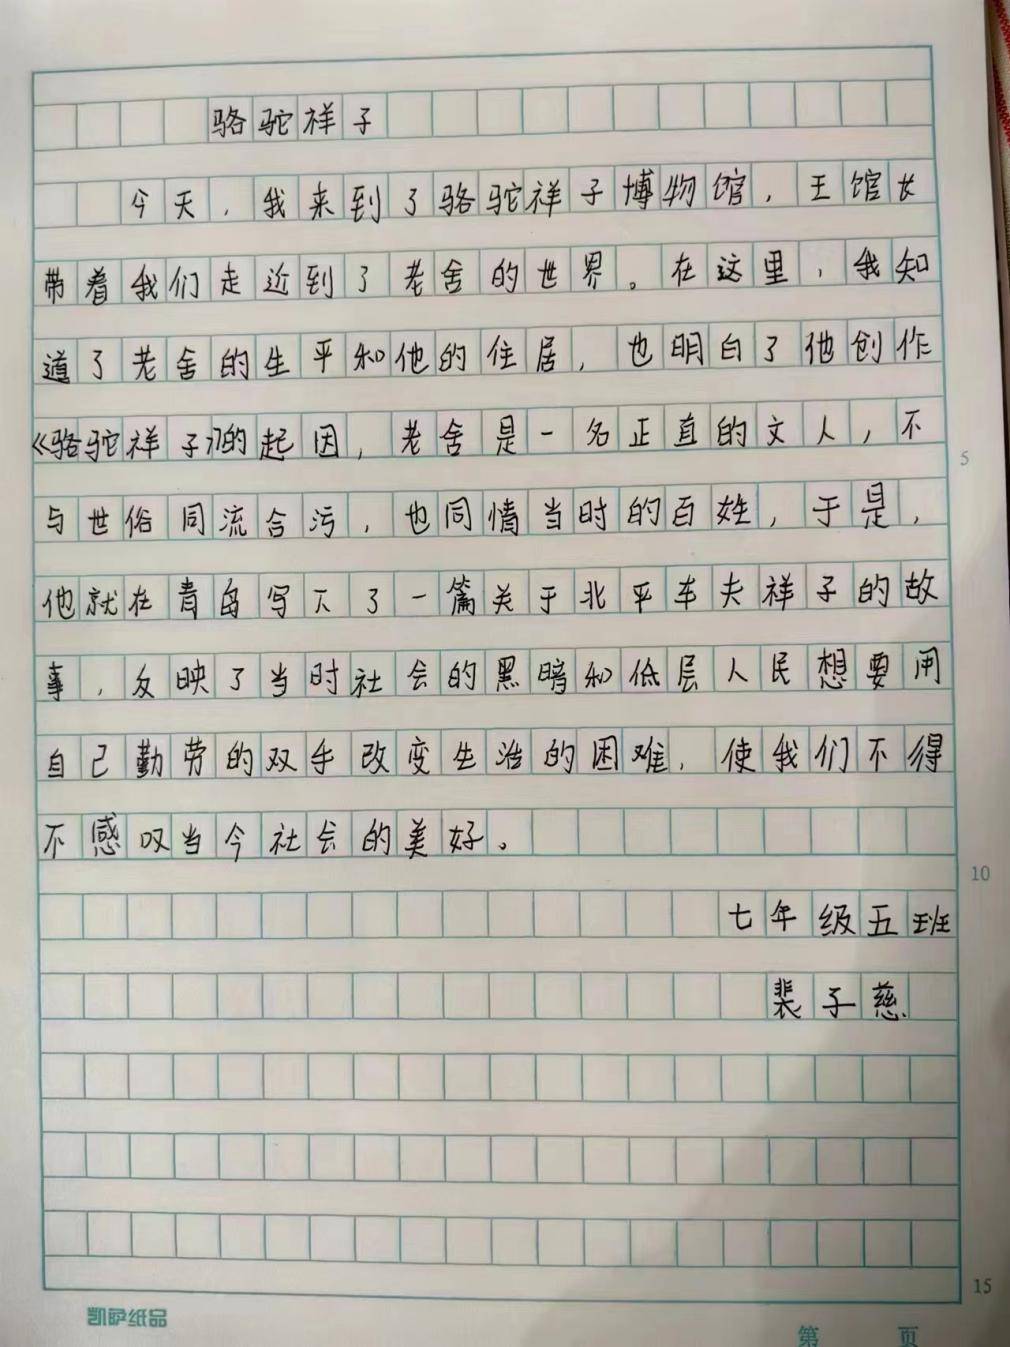 骆驼祥子
今天，我来到了骆驼祥子博物馆，王馆长
带着我们走近到了老舍的世界。在这里，我知
道了老舍的生平和他的住居，也明白了他创作
《骆驼祥子》的起因，老舍是一名正直的文人，不
与世俗同流合污，也同情当时的百姓，于是，
他就在青岛写下了一篇关于北平车夫祥子的故
事，反映了当时社会的黑暗和低层人民想要用
自己勤劳的双手改变生治的困难，使我们不得
不感叹当今社会的美好。
七年级五班
裴子慈
5
10
15
凯萨纸品
第 页